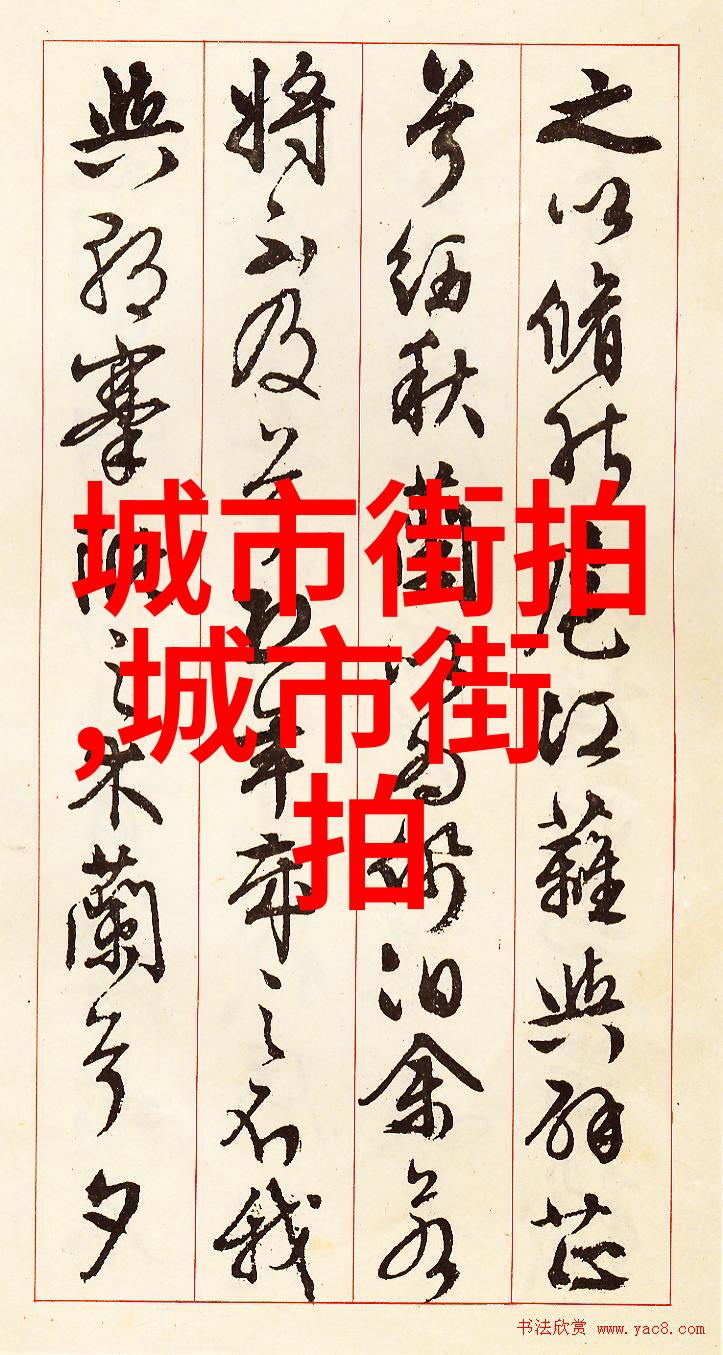 之以脩能扈江蘺與辟芷
兮紉秋蘭以為佩汨余若
將不及兮恐年歲之不我
與朝搴阰之木蘭兮夕
城市街拍
,城市街
拍
书法欣赏 www.yac8.com